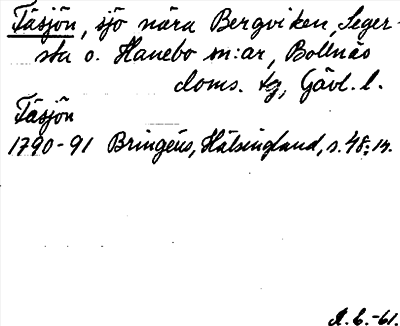 Täsjön, sjö nära Bergviken, Seger-
sta o. Hanebo sn:ar, Bollnäs
doms. tg, Gävl. l.
Täsjön
1790-91 Bringéus, Hälsingland, s. 48; 14.
A. C. -61.